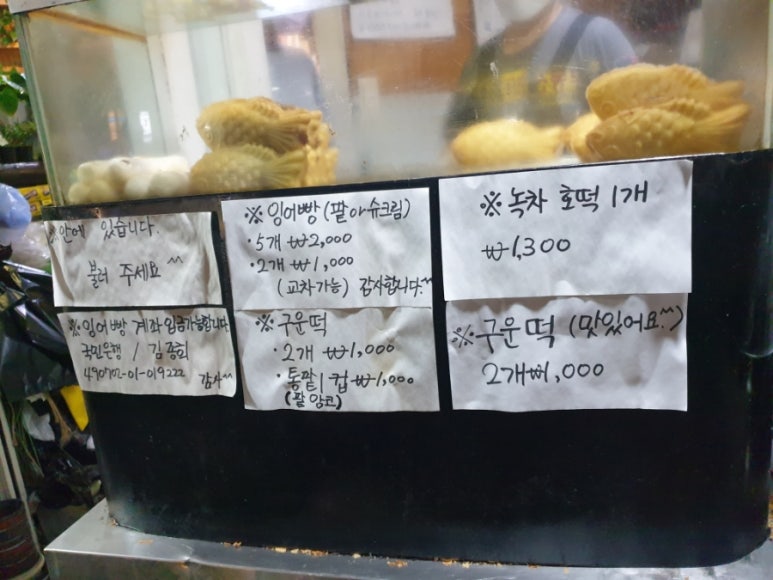 ※안에 있습니다.
불러 주세요^^
※잉어빵 계좌입금가능합니다
국민은행 / 김종희
490702-01-019222 감사^^
※잉어빵 (팥 아 슈크림)
· 5개 ₩2,000
· 2개 ₩1,000
(교차가능) 감사합니다.^^
※구운떡
· 2개 ₩1,000
· 통팥 1컵 ₩1,000
(팥 앙코)
※녹차 호떡 1개
₩1,300
※구운떡 (맛있어요.^^)
2개 ₩1,000